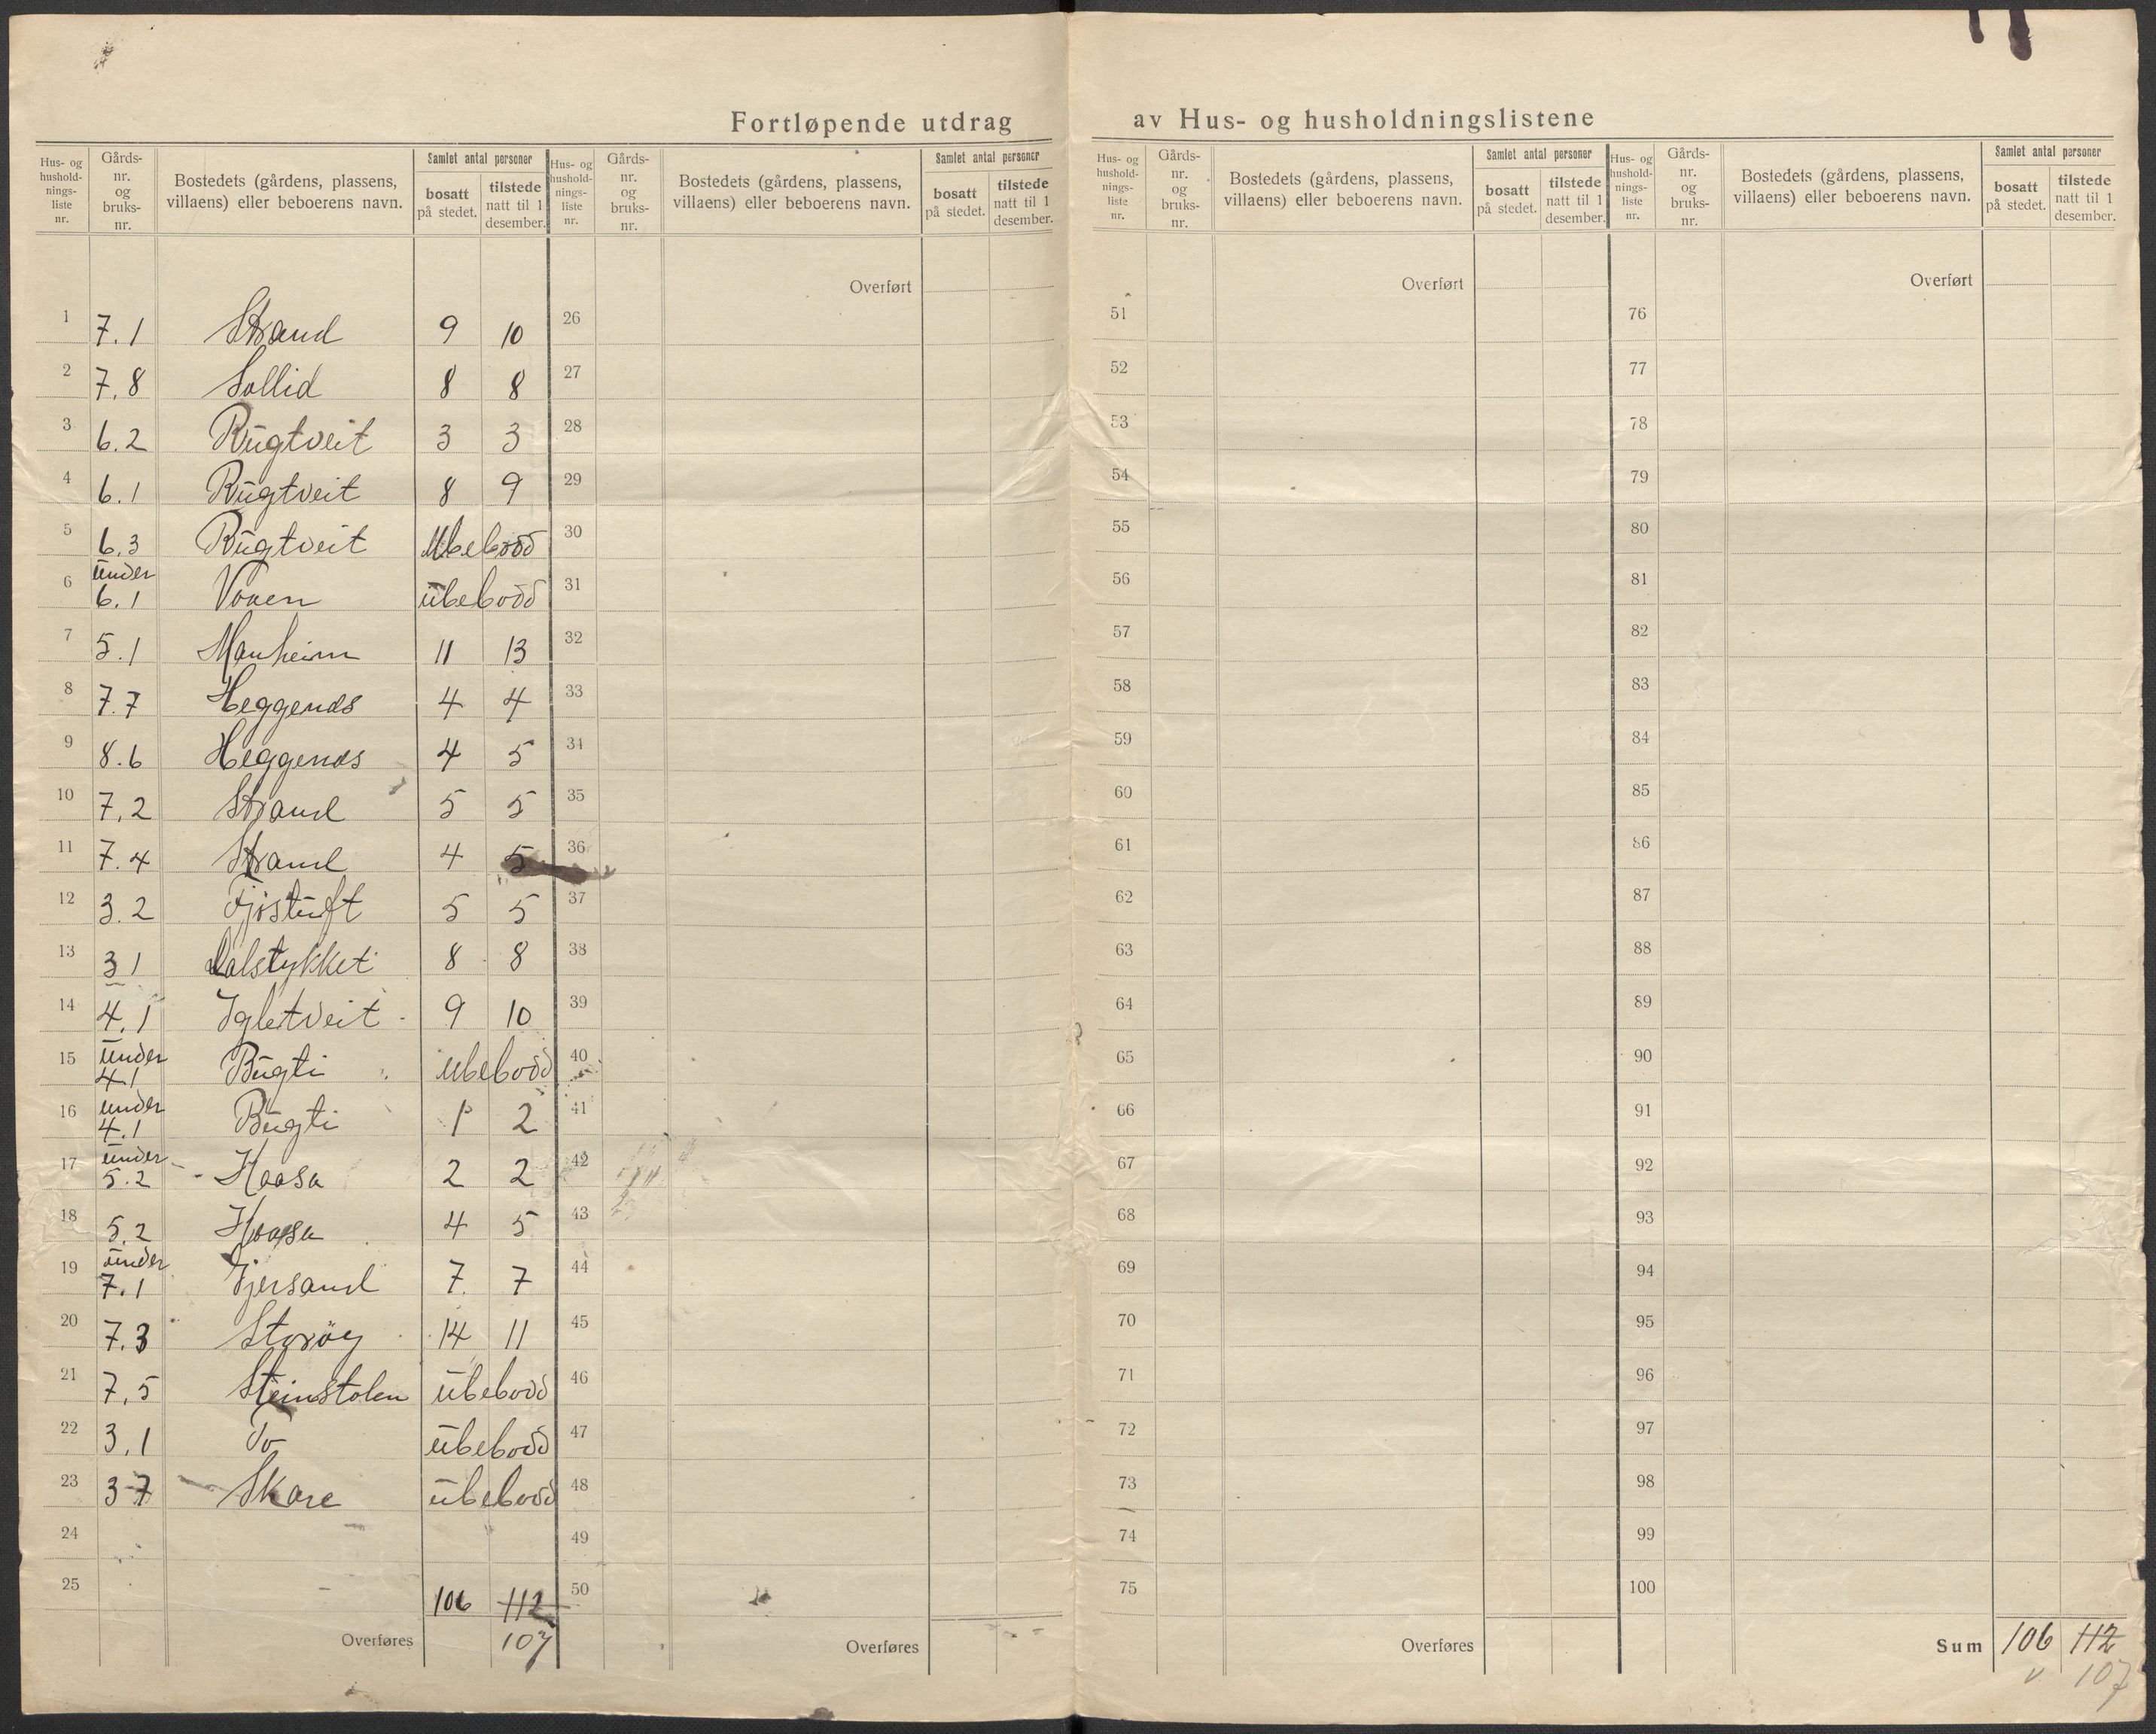 Fortløpende utdrag av Hus- og husholdningslistene
Hus- og hushold-nings-liste nr. Gårds-nr. og bruks-nr. Bostedets (gårdens, plassens, villaens) eller beboerens navn. Samlet antal personer bosatt på stedet. tilstede natt til 1 desember.
Hus- og hushold-nings-liste nr. Gårds-nr. og bruks-nr. Bostedets (gårdens, plassens, villaens) eller beboerens navn. Samlet antal personer bosatt på stedet. tilstede natt til 1 desember.
Hus- og hushold-nings-liste nr. Gårds-nr. og bruks-nr. Bostedets (gårdens, plassens, villaens) eller beboerens navn. Samlet antal personer bosatt på stedet. tilstede natt til 1 desember.
Hus- og hushold-nings-liste nr. Gårds-nr. og bruks-nr. Bostedets (gårdens, plassens, villaens) eller beboerens navn. Samlet antal personer bosatt på stedet. tilstede natt til 1 desember.
Overført Overført Overført
1 7.1 Strand 9 10 26 51 76
2 7.8 Sollid 8 8 27 52 77
3 6.2 Rugtveit 3 3 28 53 78
4 6.1 Rugtveit 8 9 29 54 79
5 6.3 Rugtveit Ubebodd 30 55 80
6 under 6.1 Vaaen ubebodd 31 56 81
7 5.1 Manheim 11 13 32 57 82
8 7.7 Heggenæs 4 4 33 58 83
9 8.6 Heggenæs 4 5 34 59 84
10 7.2 Strand 5 5 35 60 85
11 7.4 Strand 4 5 36 61 86
12 3.2 Fjøstuft 5 5 37 62 87
13 3 1 Dalstykket 8 8 38 63 88
14 4.1 Igletveit 9 10 39 64 89
15 under 4.1 Bugti ubebodd 40 65 90
16 under 4.1 Bugti 1 2 41 66 91
17 under 5.2 Haasa 2 2 42 67 92
18 5.2 Haasa 4 5 43 68 93
19 under 7.1 Tjersand 7 7 44 69 94
20 7.3 Storøy 14 11 45 70 95
21 7.5 Steinstolen ubebodd 46 71 96
22 3.1 To ubebodd 47 72 97
23 3-7 Skare ubebodd 48 73 98
24 49 74 99
25 106 112 50 75 100
Overføres 107 Overføres Overføres Sum 106 112
107